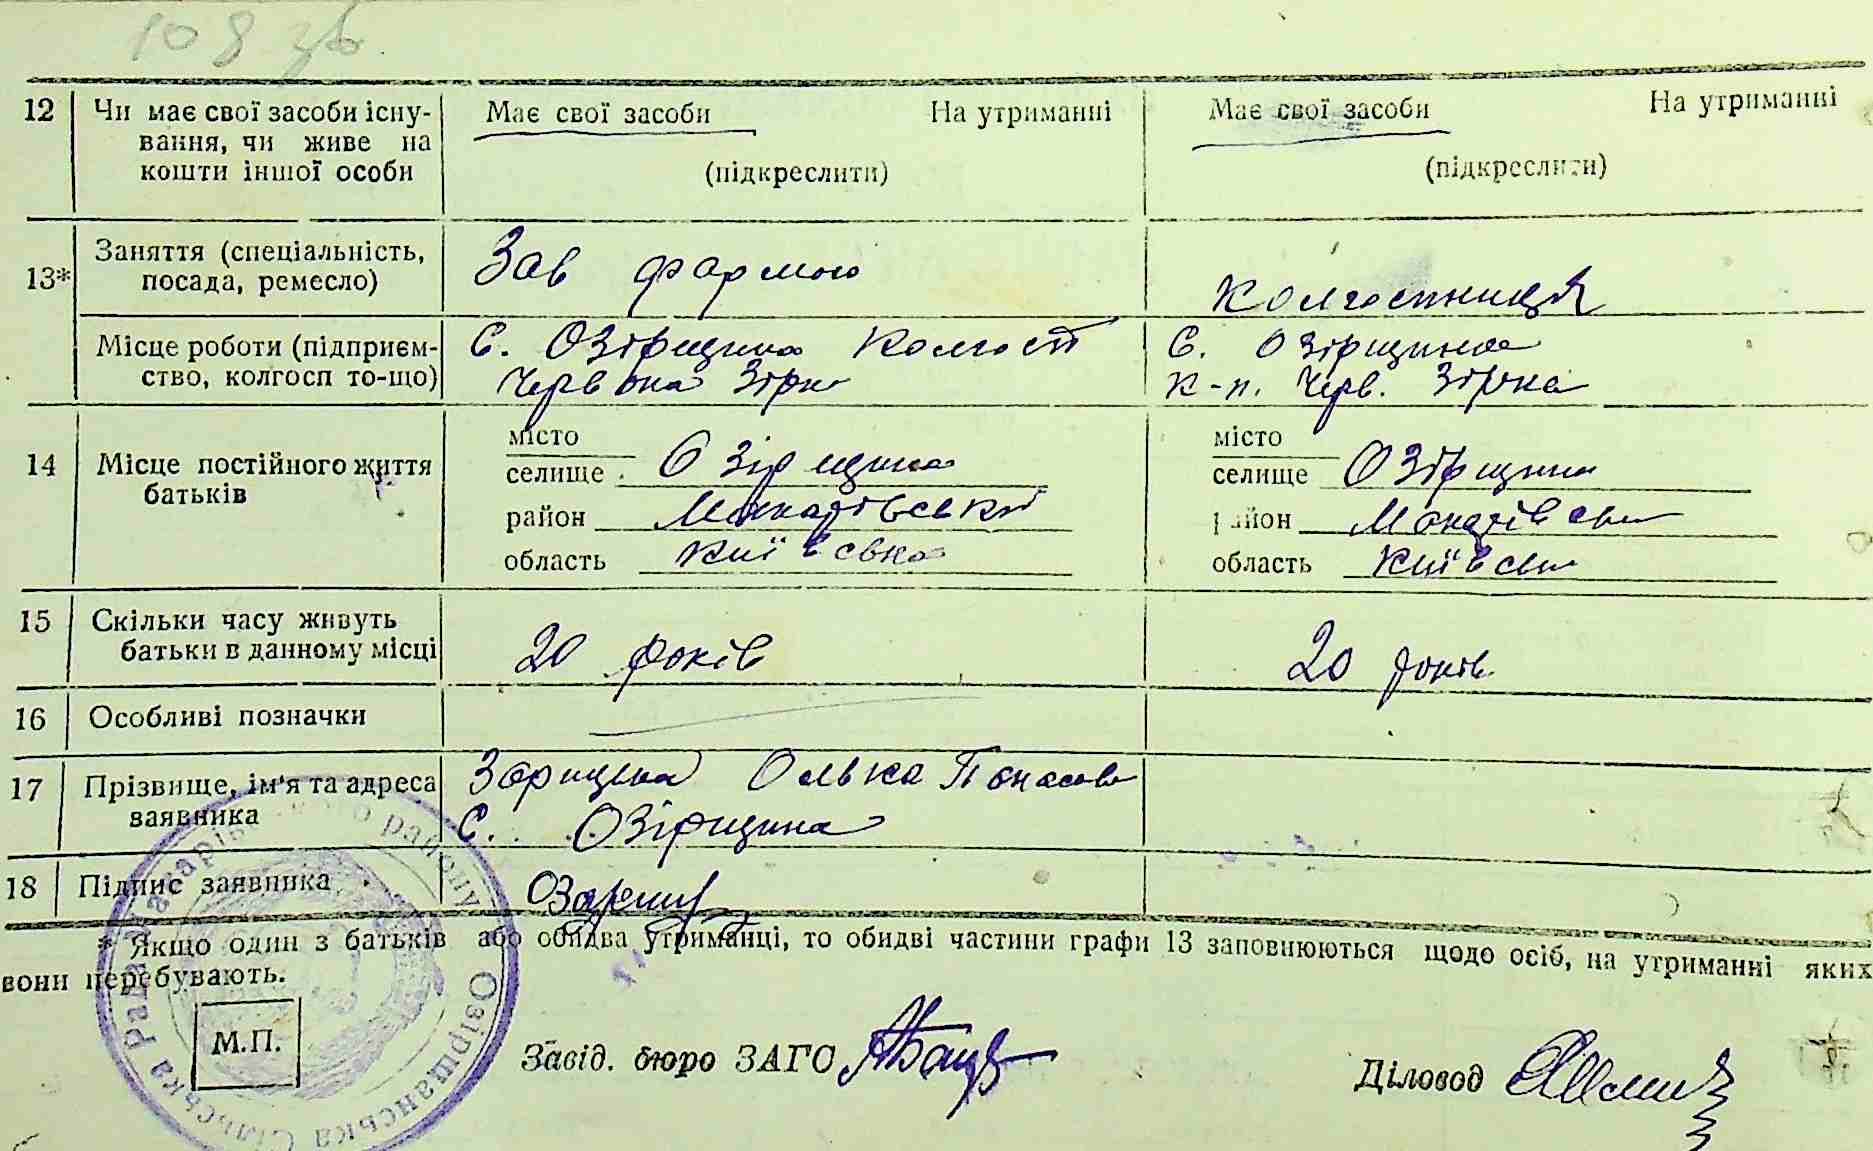 12 Чи має свої засоби існу- Має свої засоби На утриманні Має свої засоби На утриманні
вання, чи живе на
кошти іншої особи (підкреслити) (підкреслити)
Заняття (спеціальність, Зав фармою
13* посада, ремесло) колгостниця
Місце роботи (підприєм- С. Озірщина Колгосп С. Озірщина
ство, колгосп то-що) Червона Зірка к-п. Черв. Зірка
місто місто
14 Місце постійного життя селище Озірщина селище Озірщина
батьків район Макарівський район Макарівськ
область Київська область Київськ
15 Скільки часу живуть
батьки в данному місці 20 років 20 років
16 Особливі позначки
17 Прізвище, ім'я та адреса Зарицька Олька Панасов
заявника С. Озірщина
18 Підпис заявника
* Якщо один з батьків або обидва утриманці, то обидві частини графи 13 заповнюються щодо осіб, на утриманні яких
вони перебувають.
М.П. Завід. бюро ЗАГС Діловод
Озірщанська Сільська Рада Макарівського району